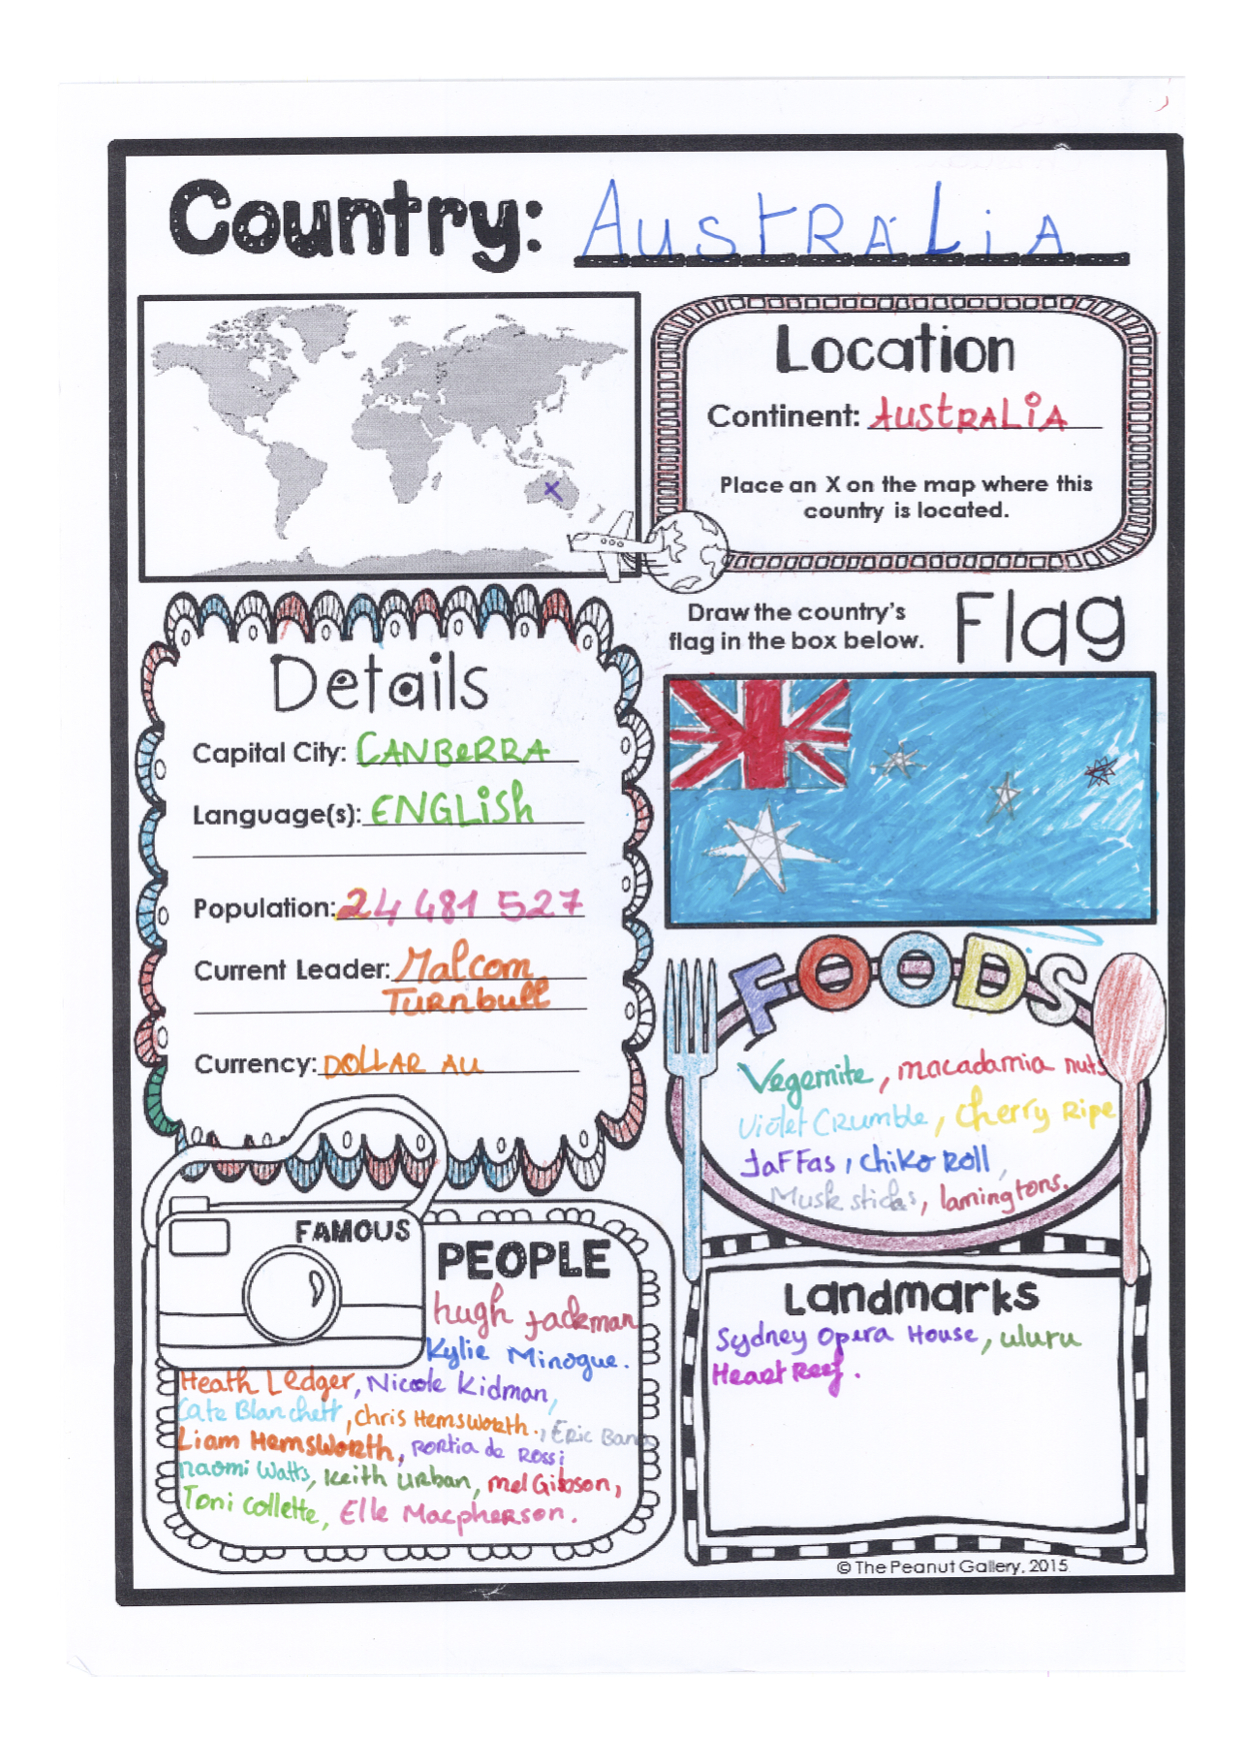 Country: AUSTRALiA
Location
Continent: AUSTRALiA
Place an X on the map where this
country is located.
Draw the country's
flag in the box below.
Flag
Details
Capital City: CANBeRRA
Language(s): ENGLiSh
Population: 24 481 527
Current Leader: Malcom
Turnbull
Currency: DOLLAR AU
FOODS
Vegemite, macadamia nuts
Violet Crumble, Cherry Ripe
JaFFas, Chiko Roll,
Musk sticks, lamingtons.
FAMOUS
PEOPLE
hugh Jackman
Kylie Minogue.
Heath Ledger, Nicole Kidman,
Cate Blanchett, Chris Hemsworth., Eric Bana
Liam Hemsworth, Portia de Rossi
naomi Watts, Keith Urban, mel Gibson,
Toni Collette, Elle Macpherson.
Landmarks
Sydney Opera House, uluru
Heart Reef.
© The Peanut Gallery, 2015